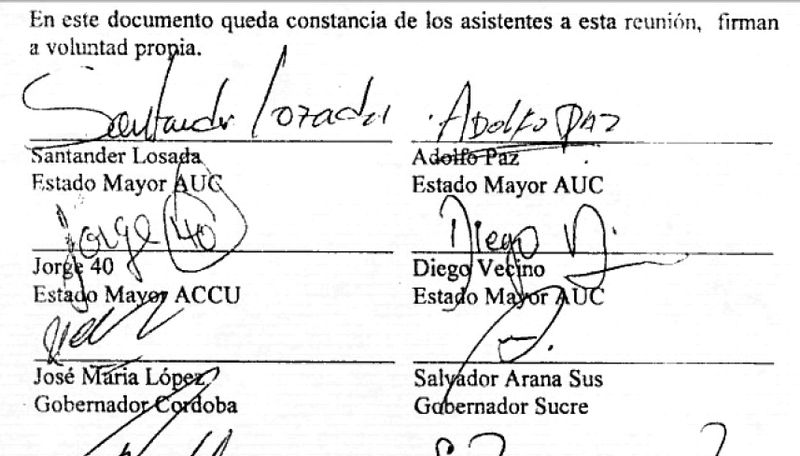 En este documento queda constancia de los asistentes a esta reunión, firman
a voluntad propia.
Santander Lozada
Adolfo Paz
Santander Losada
Adolfo Paz
Estado Mayor AUC
Estado Mayor AUC
Jorge 40
Diego V.
Jorge 40
Diego Vecino
Estado Mayor ACCU
Estado Mayor AUC
José María López
Salvador Arana Sus
Gobernador Cordoba
Gobernador Sucre